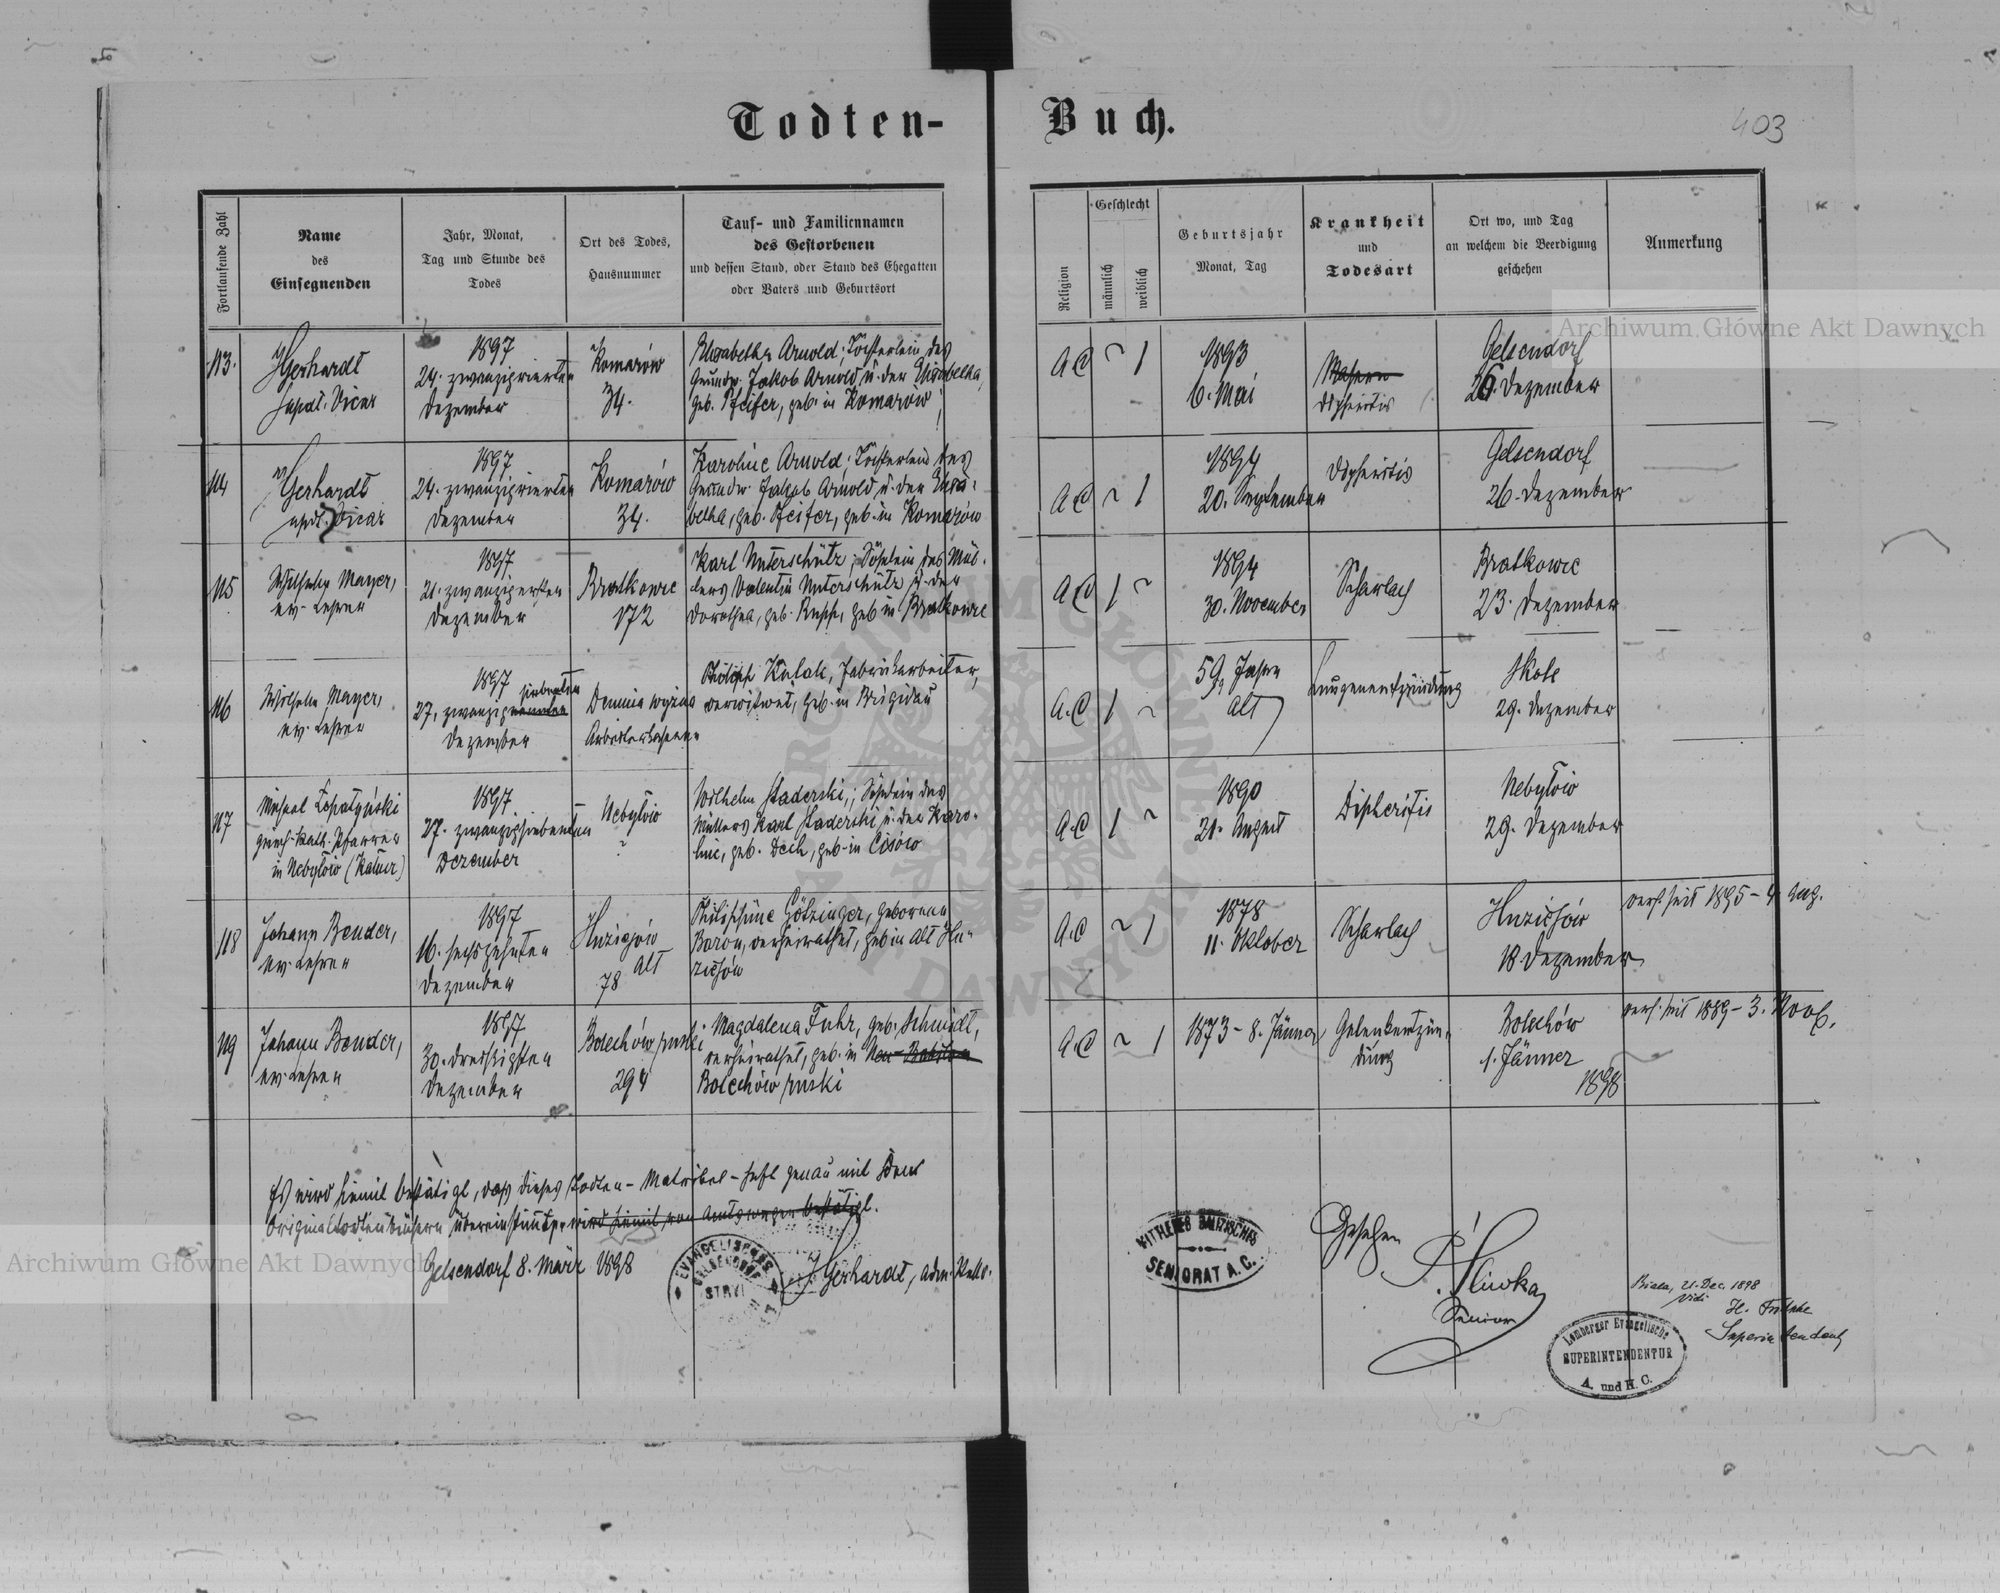 Todten-Buch.
403
Fortlaufende Zahl
Name
des
Einsegnenden
Jahr, Monat,
Tag und Stunde des
Todes
Ort des Todes,
Hausnummer
Tauf- und Familiennamen
des Gestorbenen
und dessen Stand, oder Stand des Ehegatten
oder Vaters und Geburtsort
Religion
Geschlecht
männlich
weiblich
Geburtsjahr
Monat, Tag
Krankheit
und
Todesart
Ort wo, und Tag
an welchem die Beerdigung
geschehen
Anmerkung
113.
Gerhardt
Vicar
1897
24. zwanzigvierten
Dezember
Komarów
34.
Elisabetha Arnold; Töchterlein des
Grundw. Jakob Arnold u. der Elisabetha,
geb. Pfeifer, geb. in Komarów
A.C. 1
1893
6. Mai
Masern
Dipheritis
Gelsendorf
26. Dezember
114
Gerhardt
Vicar
1897
24. zwanzigvierten
Dezember
Komarów
34.
Karoline Arnold; Töchterlein des
Grundw. Jakob Arnold u. der Elisa-
betha, geb. Pfeifer, geb. in Komarów
A.C. 1
1894
20. September
Dipheritis
Gelsendorf
26. Dezember
115
Wilhelm Mayer,
ev. Lehrer
1897
21. zwanzigersten
Dezember
Bratkowce
172
Karl Unterschütz; Söhnlein des Mül-
lers Valentin Unterschütz u. der
Dorothea, geb. Rupp, geb in Bratkowce
A.C. 1
1894
30. November
Scharlach
Bratkowce
23. Dezember
116
Wilhelm Mayer,
ev. Lehrer
1897
27. zwanzig siebenten
Dezember
Demnia wyżna
Philipp Kulak, Fabrikarbeiter,
verwitwet, geb. in Brigidau
A.C. 1
59 Jahre
alt
Lungenentzündung
Skole
29. Dezember
117
Michael Łopatyński
griech.-kath. Pfarrer
in Nebyłów (Kałusz)
1897
27. zwanzigsiebenten
Dezember
Nebyłów
?
Wilhelm Staderski; Söhnlein des
Müllers Karl Staderski u. der Karo-
line, geb. Dech, geb. in Cisów
A.C. 1
1890
21. August
Dipheritis
Nebyłów
29. Dezember
118
Johann Bender,
ev. Lehrer
1897
16. sechszehnten
Dezember
Huziejów
alt
78
Philippine Götzinger, geborene
Baron, verheirathet, geb in Alt Hu-
ziejów
A.C. 1
1878
11. Oktober
Scharlach
Huziejów
18. Dezember
verh. seit 1895 - 4. Aug.
119
Johann Bender,
ev. Lehrer
1897
30. dreißigsten
Dezember
Bolechów ruski
294
Magdalena Fuhr, geb. Schmidt,
verheirathet, geb. in Neu-Babilon
Bolechów ruski
A.C. 1
1873 - 8. Jänner
Gelenkentzün-
dung
Bolechów
1. Jänner
1898
verh. seit 1889 - 3. Nov.
Es wird hiemit bestätigt, daß dieses Todten-Matrikel-Heft genau mit dem
Originaltodtenbüchern übereinstimmt wird hiemit von Amtswegen bestätigt.
Gelsendorf 8. März 1898
Gerhardt, Adm.
EVANGELISCHES
GELSENDORF
STRYI
MITTLERES GALIZISCHES
SENIORAT A. C.
Gesehen
Śliwka
Senior
Biala, 21. Dec. 1898
Vidi
H. Fritsche
Superintendent
Lemberger Evangelische
SUPERINTENDENTUR
A. und H. C.
Archiwum Główne Akt Dawnych
Archiwum Główne Akt Dawnych
ARCHIWUM GŁÓWNE AKT DAWNYCH